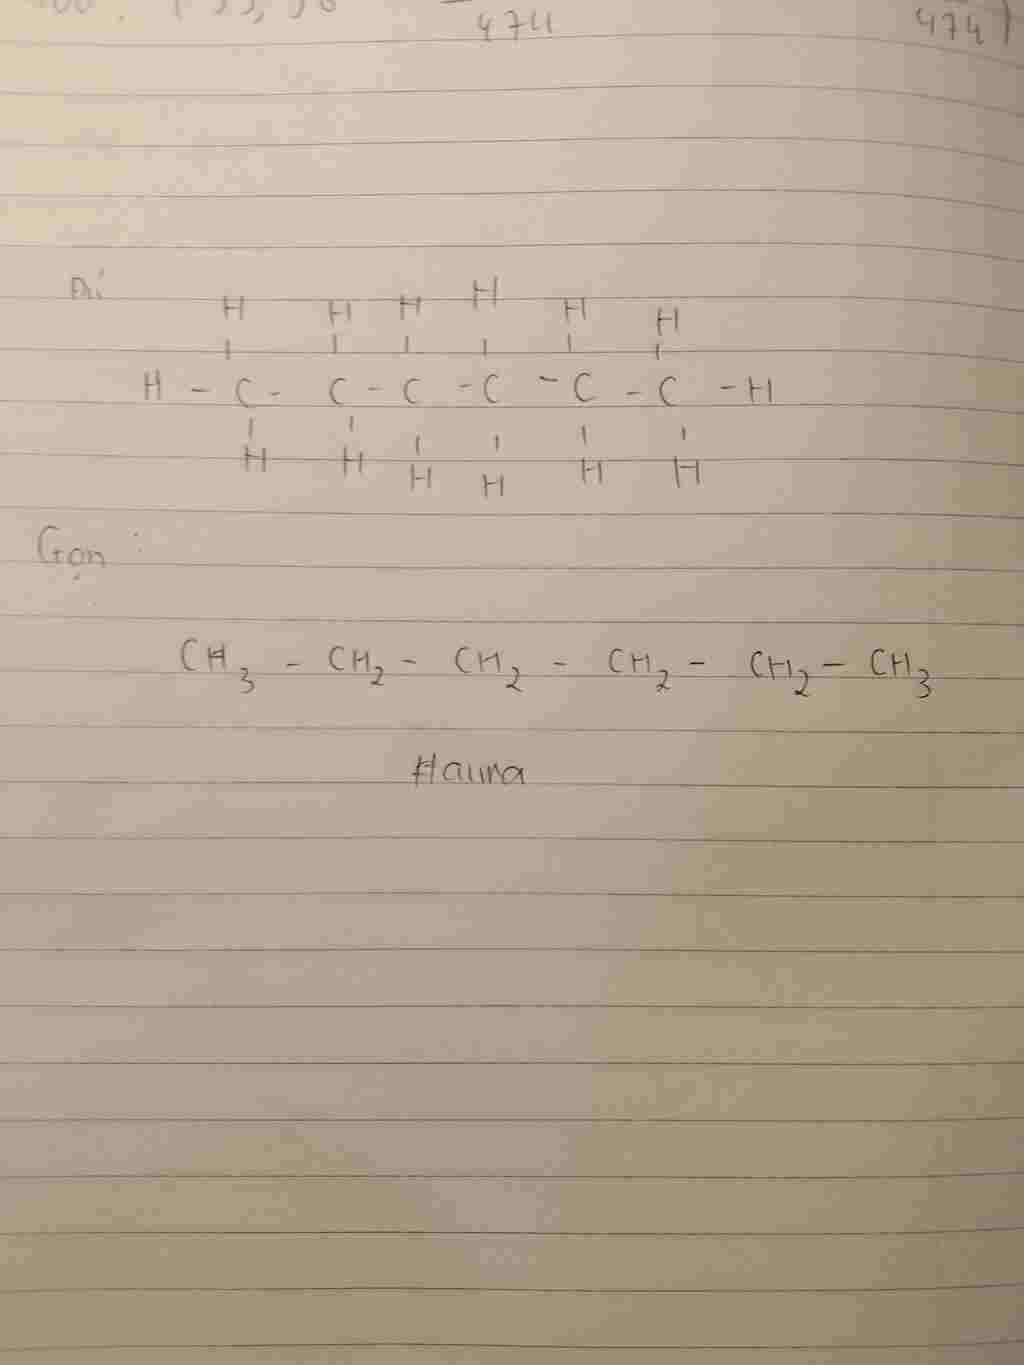 474 474)
H H H H H H
H - C - C - C - C - C - C - H
H H H H H H
Gọn :
CH3 - CH2 - CH2 - CH2 - CH2 - CH3
Hauna